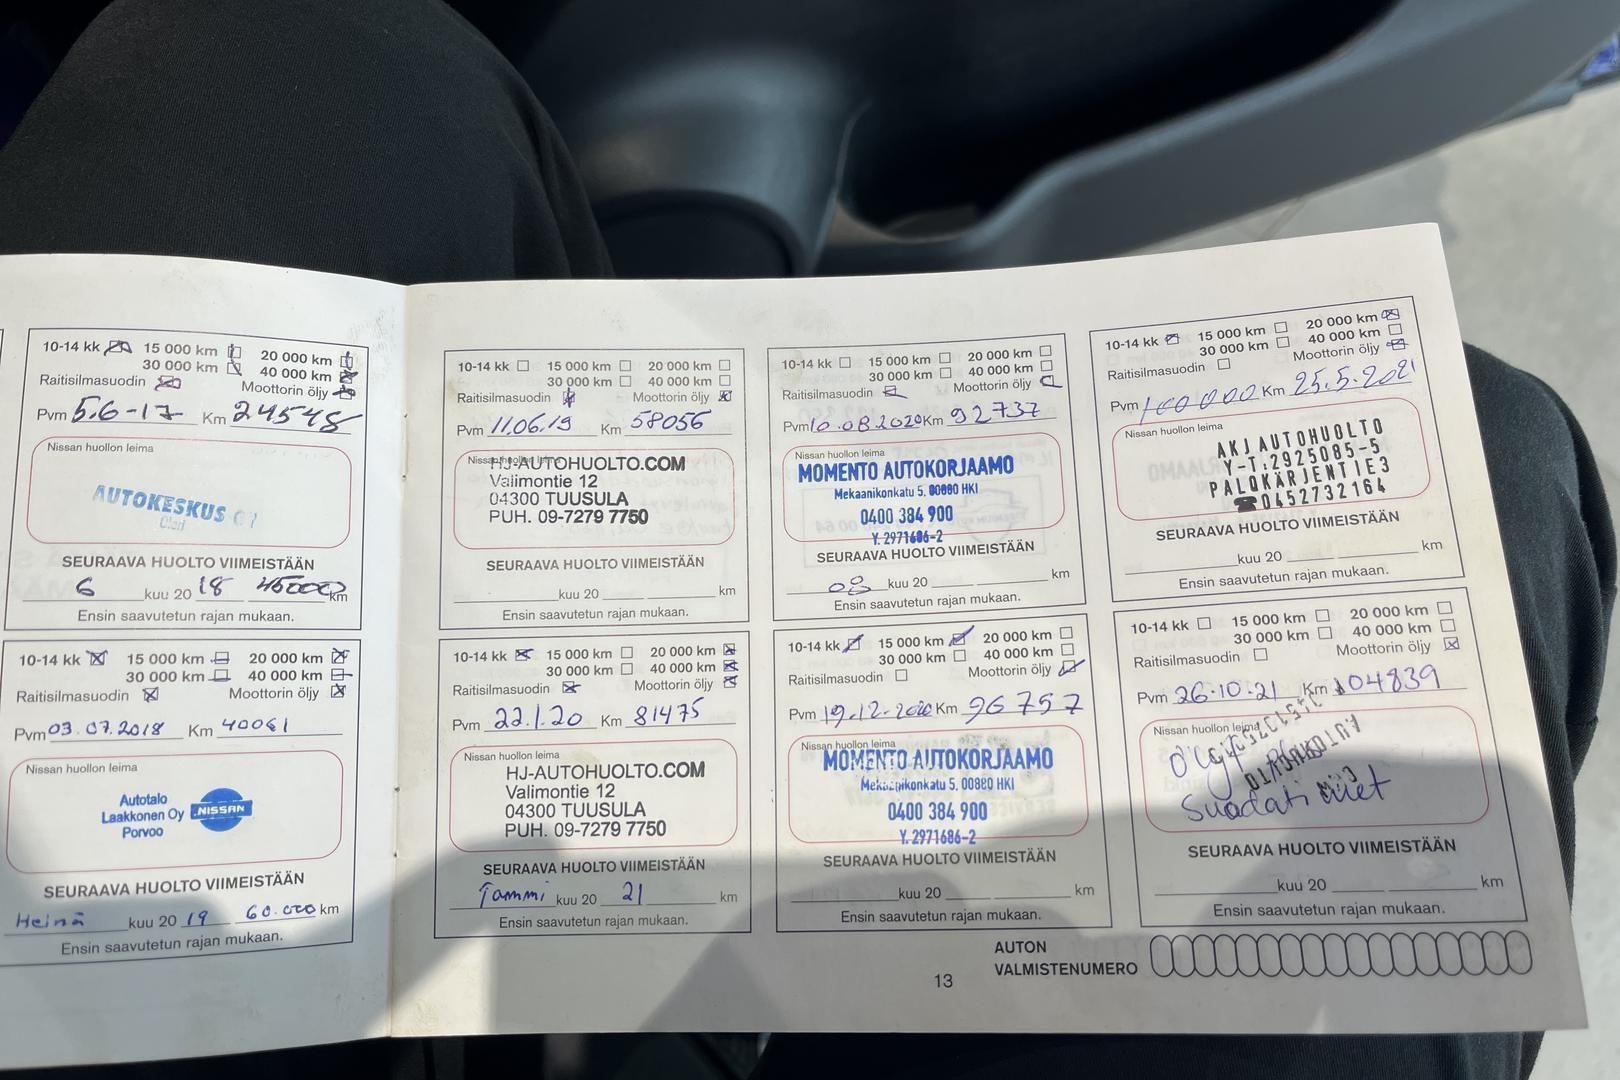 10-14 kk 15 000 km 20 000 km
30 000 km 40 000 km
Raitisilmasuodin Moottorin öljy
Pvm 5.6-17 Km 24548
Nissan huollon leima
AUTOKESKUS
Olari
SEURAAVA HUOLTO VIIMEISTÄÄN
6 kuu 20 18 45000 km
Ensin saavutetun rajan mukaan.
10-14 kk 15 000 km 20 000 km
30 000 km 40 000 km
Raitisilmasuodin Moottorin öljy
Pvm 03.07.2018 Km 40061
Nissan huollon leima
Autotalo
Laakkonen Oy NISSAN
Porvoo
SEURAAVA HUOLTO VIIMEISTÄÄN
Heinä kuu 20 19 60.000 km
Ensin saavutetun rajan mukaan.
10-14 kk 15 000 km 20 000 km
30 000 km 40 000 km
Raitisilmasuodin Moottorin öljy
Pvm 11.06.19 Km 58056
Nissan huollon leima
HJ-AUTOHUOLTO.COM
Valimontie 12
04300 TUUSULA
PUH. 09-7279 7750
SEURAAVA HUOLTO VIIMEISTÄÄN
kuu 20 km
Ensin saavutetun rajan mukaan.
10-14 kk 15 000 km 20 000 km
30 000 km 40 000 km
Raitisilmasuodin Moottorin öljy
Pvm 22.1.20 Km 81475
Nissan huollon leima
HJ-AUTOHUOLTO.COM
Valimontie 12
04300 TUUSULA
PUH. 09-7279 7750
SEURAAVA HUOLTO VIIMEISTÄÄN
Tammi kuu 20 21 km
Ensin saavutetun rajan mukaan.
10-14 kk 15 000 km 20 000 km
30 000 km 40 000 km
Raitisilmasuodin Moottorin öljy
Pvm 10.08.2020 Km 92737
Nissan huollon leima
MOMENTO AUTOKORJAAMO
Mekaanikonkatu 5, 00880 HKI
0400 384 900
Y. 2971686-2
SEURAAVA HUOLTO VIIMEISTÄÄN
08 kuu 20 km
Ensin saavutetun rajan mukaan.
10-14 kk 15 000 km 20 000 km
30 000 km 40 000 km
Raitisilmasuodin Moottorin öljy
Pvm 19.12.2020 Km 96757
Nissan huollon leima
MOMENTO AUTOKORJAAMO
Mekaanikonkatu 5, 00880 HKI
0400 384 900
Y. 2971686-2
SEURAAVA HUOLTO VIIMEISTÄÄN
kuu 20 km
Ensin saavutetun rajan mukaan.
10-14 kk 15 000 km 20 000 km
30 000 km 40 000 km
Raitisilmasuodin Moottorin öljy
Pvm 100000 Km 25.5.2021
Nissan huollon leima
AKJ AUTOHUOLTO
Y-T:2925085-5
PALOKÄRJENTIE3
☎0452732164
SEURAAVA HUOLTO VIIMEISTÄÄN
kuu 20 km
Ensin saavutetun rajan mukaan.
10-14 kk 15 000 km 20 000 km
30 000 km 40 000 km
Raitisilmasuodin Moottorin öljy
Pvm 26.10.21 Km 104839
Nissan huollon leima
SEURAAVA HUOLTO VIIMEISTÄÄN
kuu 20 km
Ensin saavutetun rajan mukaan.
AUTON
VALMISTENUMERO
13